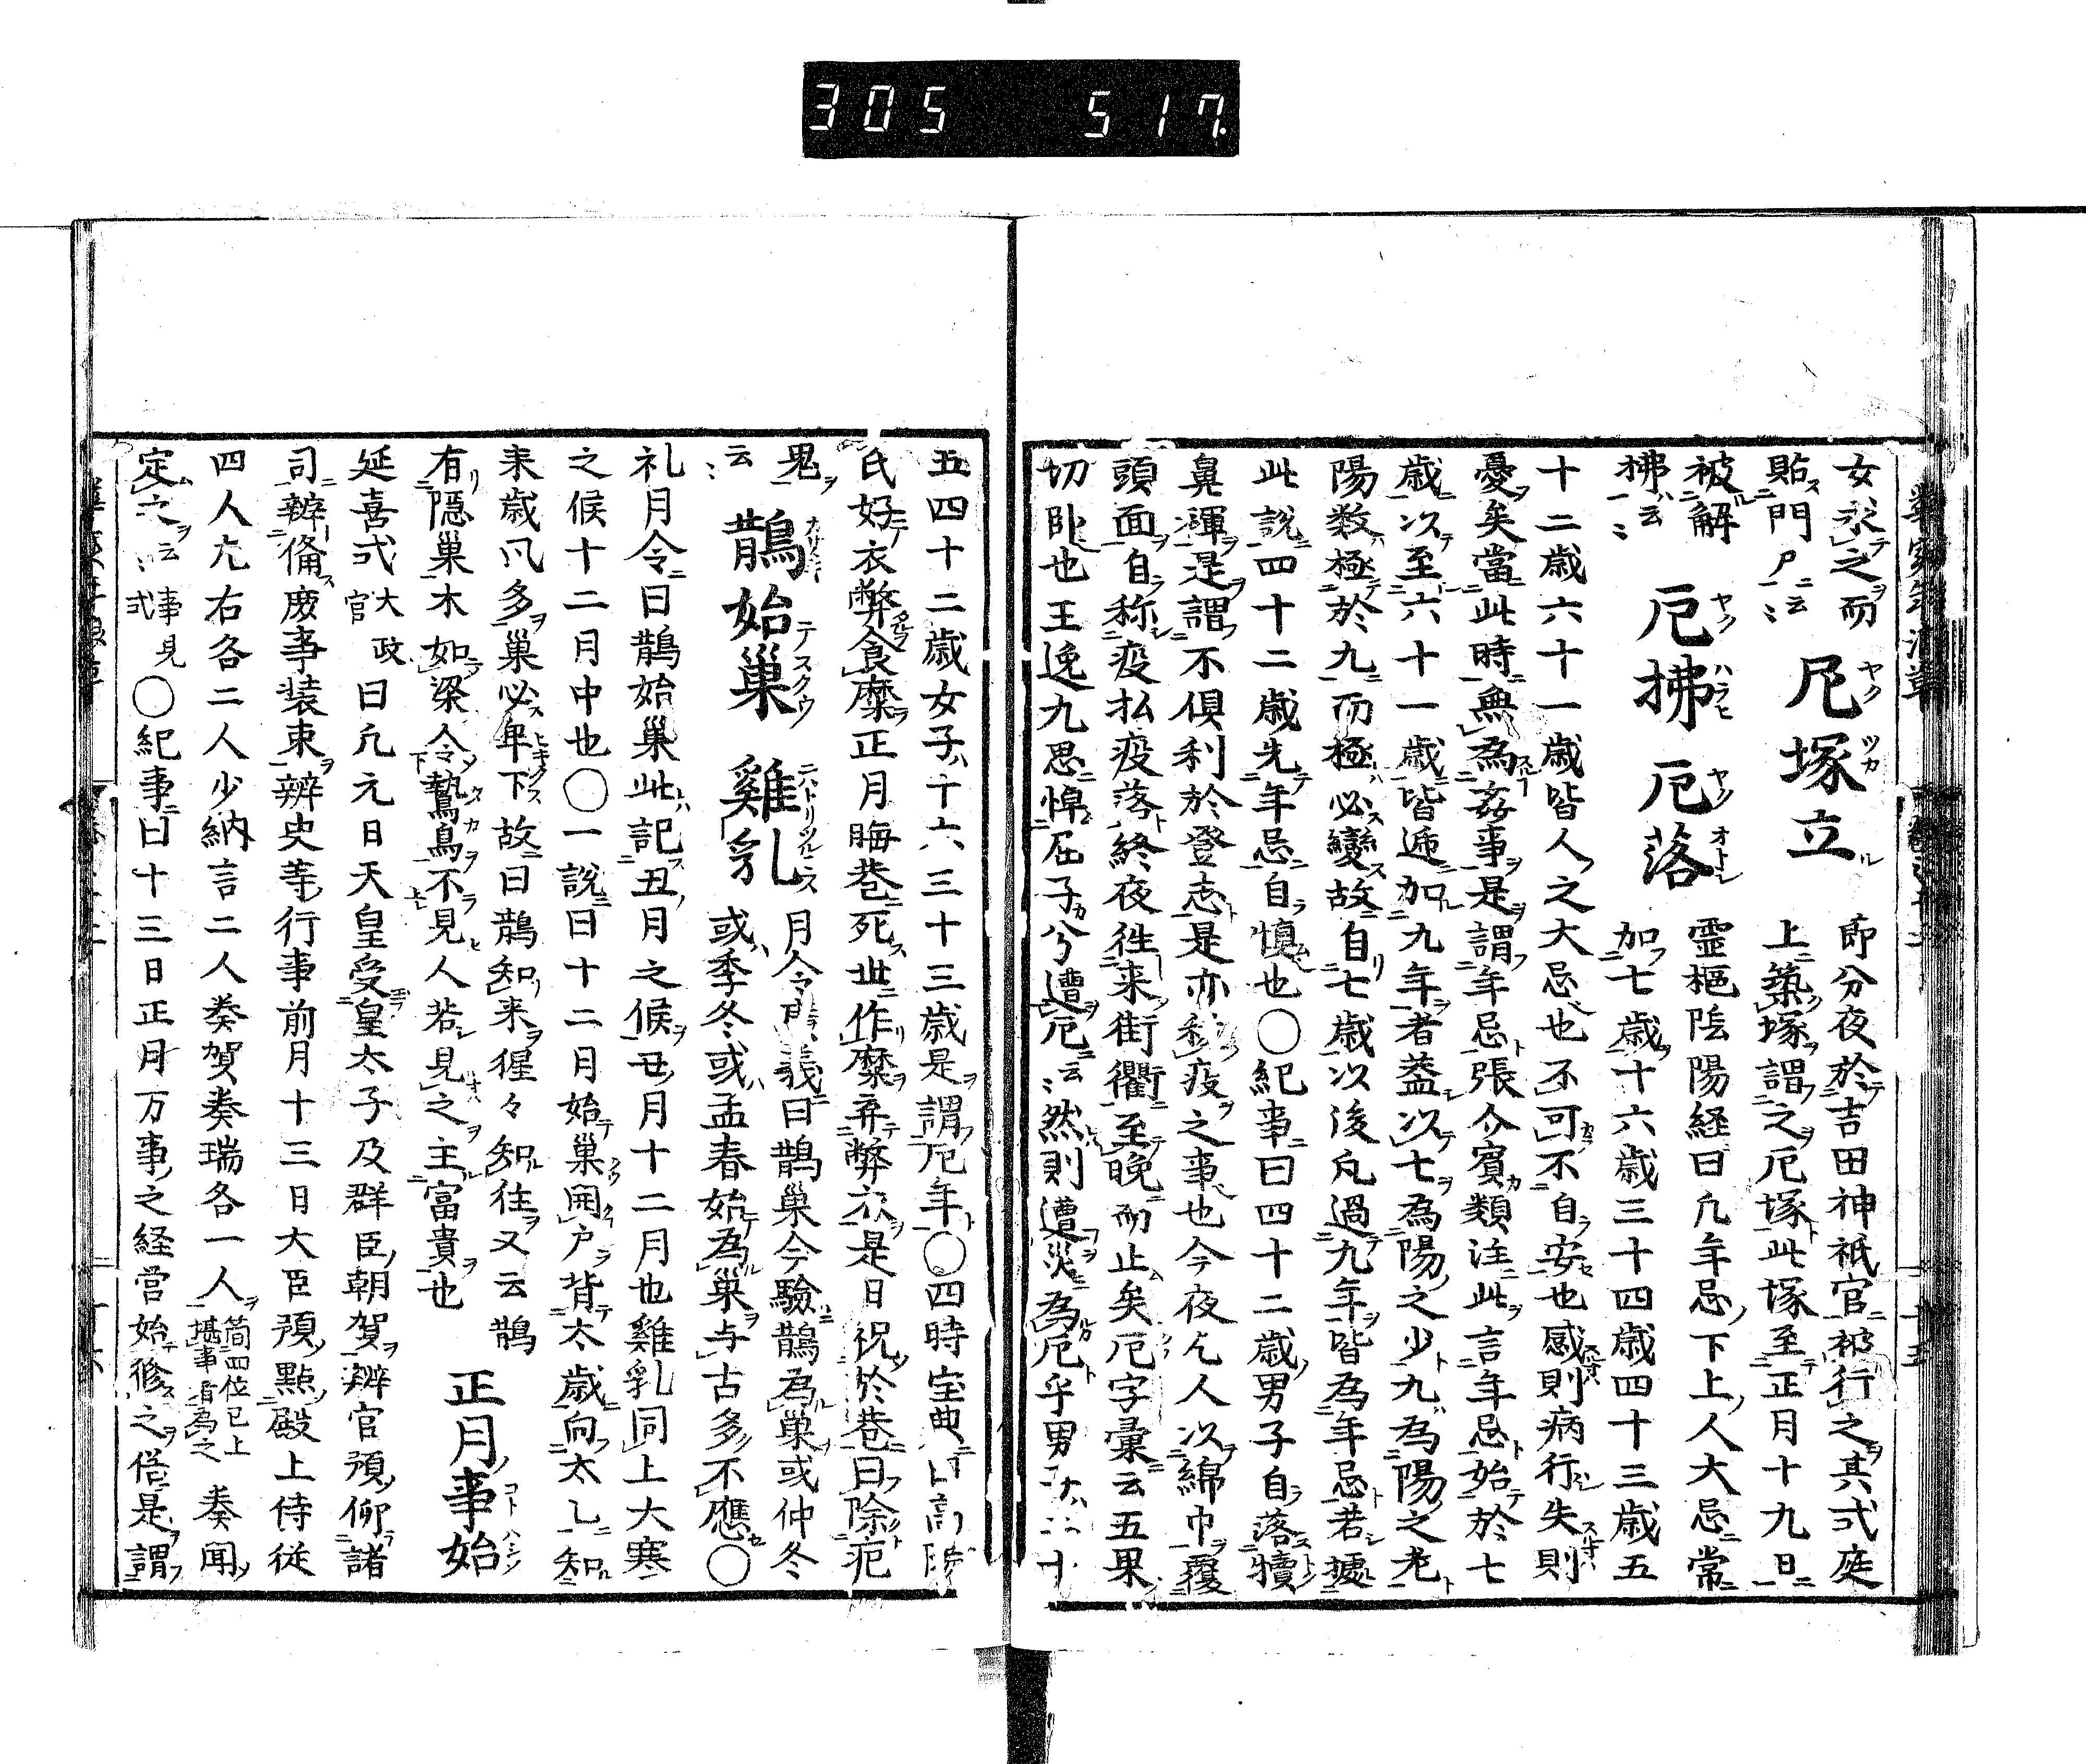 305 517.
女求之而
貼門戸ニ云〻
厄塚立
節分夜於吉田神祇官被行之其式庭
上築塚謂之厄塚此塚至正月十九日
被解
拂ハ云〻
厄拂
厄落
霊樞陰陽経曰凢年忌下上人大忌常
加七歳十六歳三十四歳四十三歳五
十二歳六十一歳皆人之大忌也不可不自安也感則病行失則
憂矣當此時無為姦事是謂年忌張介賓類注此言年忌始於七
歳以至六十一歳皆逓加九年者葢以七為陽之少九為陽之老
陽数極於九而極必變故自七歳以後凢過九年皆為年忌若據
此説四十二歳先年忌自慎也〇紀事曰四十二歳男子自落犢
鼻褌是謂不倶利於登志是亦移疫之事也今夜乞人以綿巾覆
頭面自称疫払疫落終夜徃来街衢至晩而止矣厄字彙云五果
切卧也王逸九思悼屈子兮遭厄云〻然則遭災為厄乎男子二十
五四十二歳女子ハ十六三十三歳是謂厄年〇四時宝典曰高陽
氏好衣弊食糜正月晦巷死世作糜弃弊衣是日祝於巷曰除疟
鬼
云〻
鵲始巣
雞乳
月令義曰鵲巣今驗鵲為巣或仲冬
或季冬或孟春始為巣与古多不應〇
礼月令曰鵲始巣此記丑月之候丑月十二月也雞乳同上大寒
之候十二月中也〇一説曰十二月始巣開戸背太歳向太乙知
来歳风多巣必卑下故曰鵲知来猩々知往又云鵲
有隠巣木如梁令鷙鳥不見人若見之主富貴也
正月事始
延喜式大政官曰凢元日天皇受皇太子及群臣朝賀辨官預仰諸
司辨備庶事装束辨史等行事前月十三日大臣預點殿上侍従
四人凢右各二人少納言二人奏賀奏瑞各一人簡四位已上堪事者為之奏聞
定之云〻事見式〇紀事曰十三日正月万事之経営始修之俗是謂